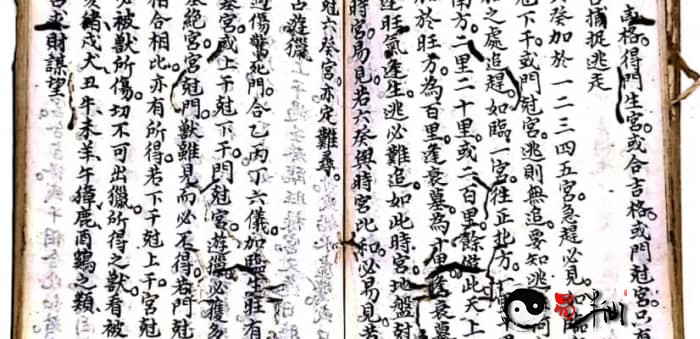 格。得門生宮或合吉格。或門尅宮只有
占捕捉逃走
癸加於一二三四五宮急趕必見。如臨
尅下干或門尅宮逃則無追。要知逃
之處追趕。如臨一宮往正北方。
南方。二里二十里或二百里餘倣此。天上
加於旺方為百里。逢衰墓為十里。逢衰墓
逢旺氣逢生逃必難追。如此時宮地盤尅
時宮易見。若六癸與時宮比和必易見。若
尅六癸宮亦定難尋。
占遊獵
傷驚死門合乙丙丁六儀加臨生旺有
墓宮或上干尅下干門尅宮。遊獵必獲多
墓絕宮宮尅門。獸難見而必不得。若門尅
相合相比亦有所得。若下干尅上干宮尅
必被獸所傷。切不可出獵。所得之獸看被
亥豬戌犬丑牛未羊午獐鹿酉鷄之類
占求財謀望
易